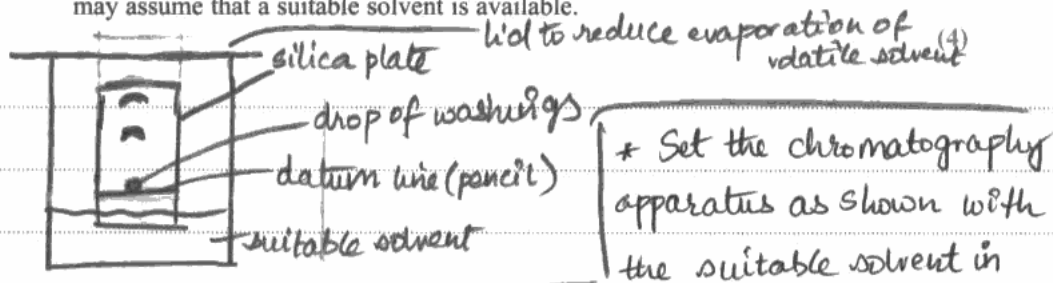 may assume that a suitable solvent is available.
lid to reduce evaporation of
volatile solvent
(4)
silica plate
drop of washings
datum line (pencil)
suitable solvent
* Set the chromatography
apparatus as shown with
the suitable solvent in